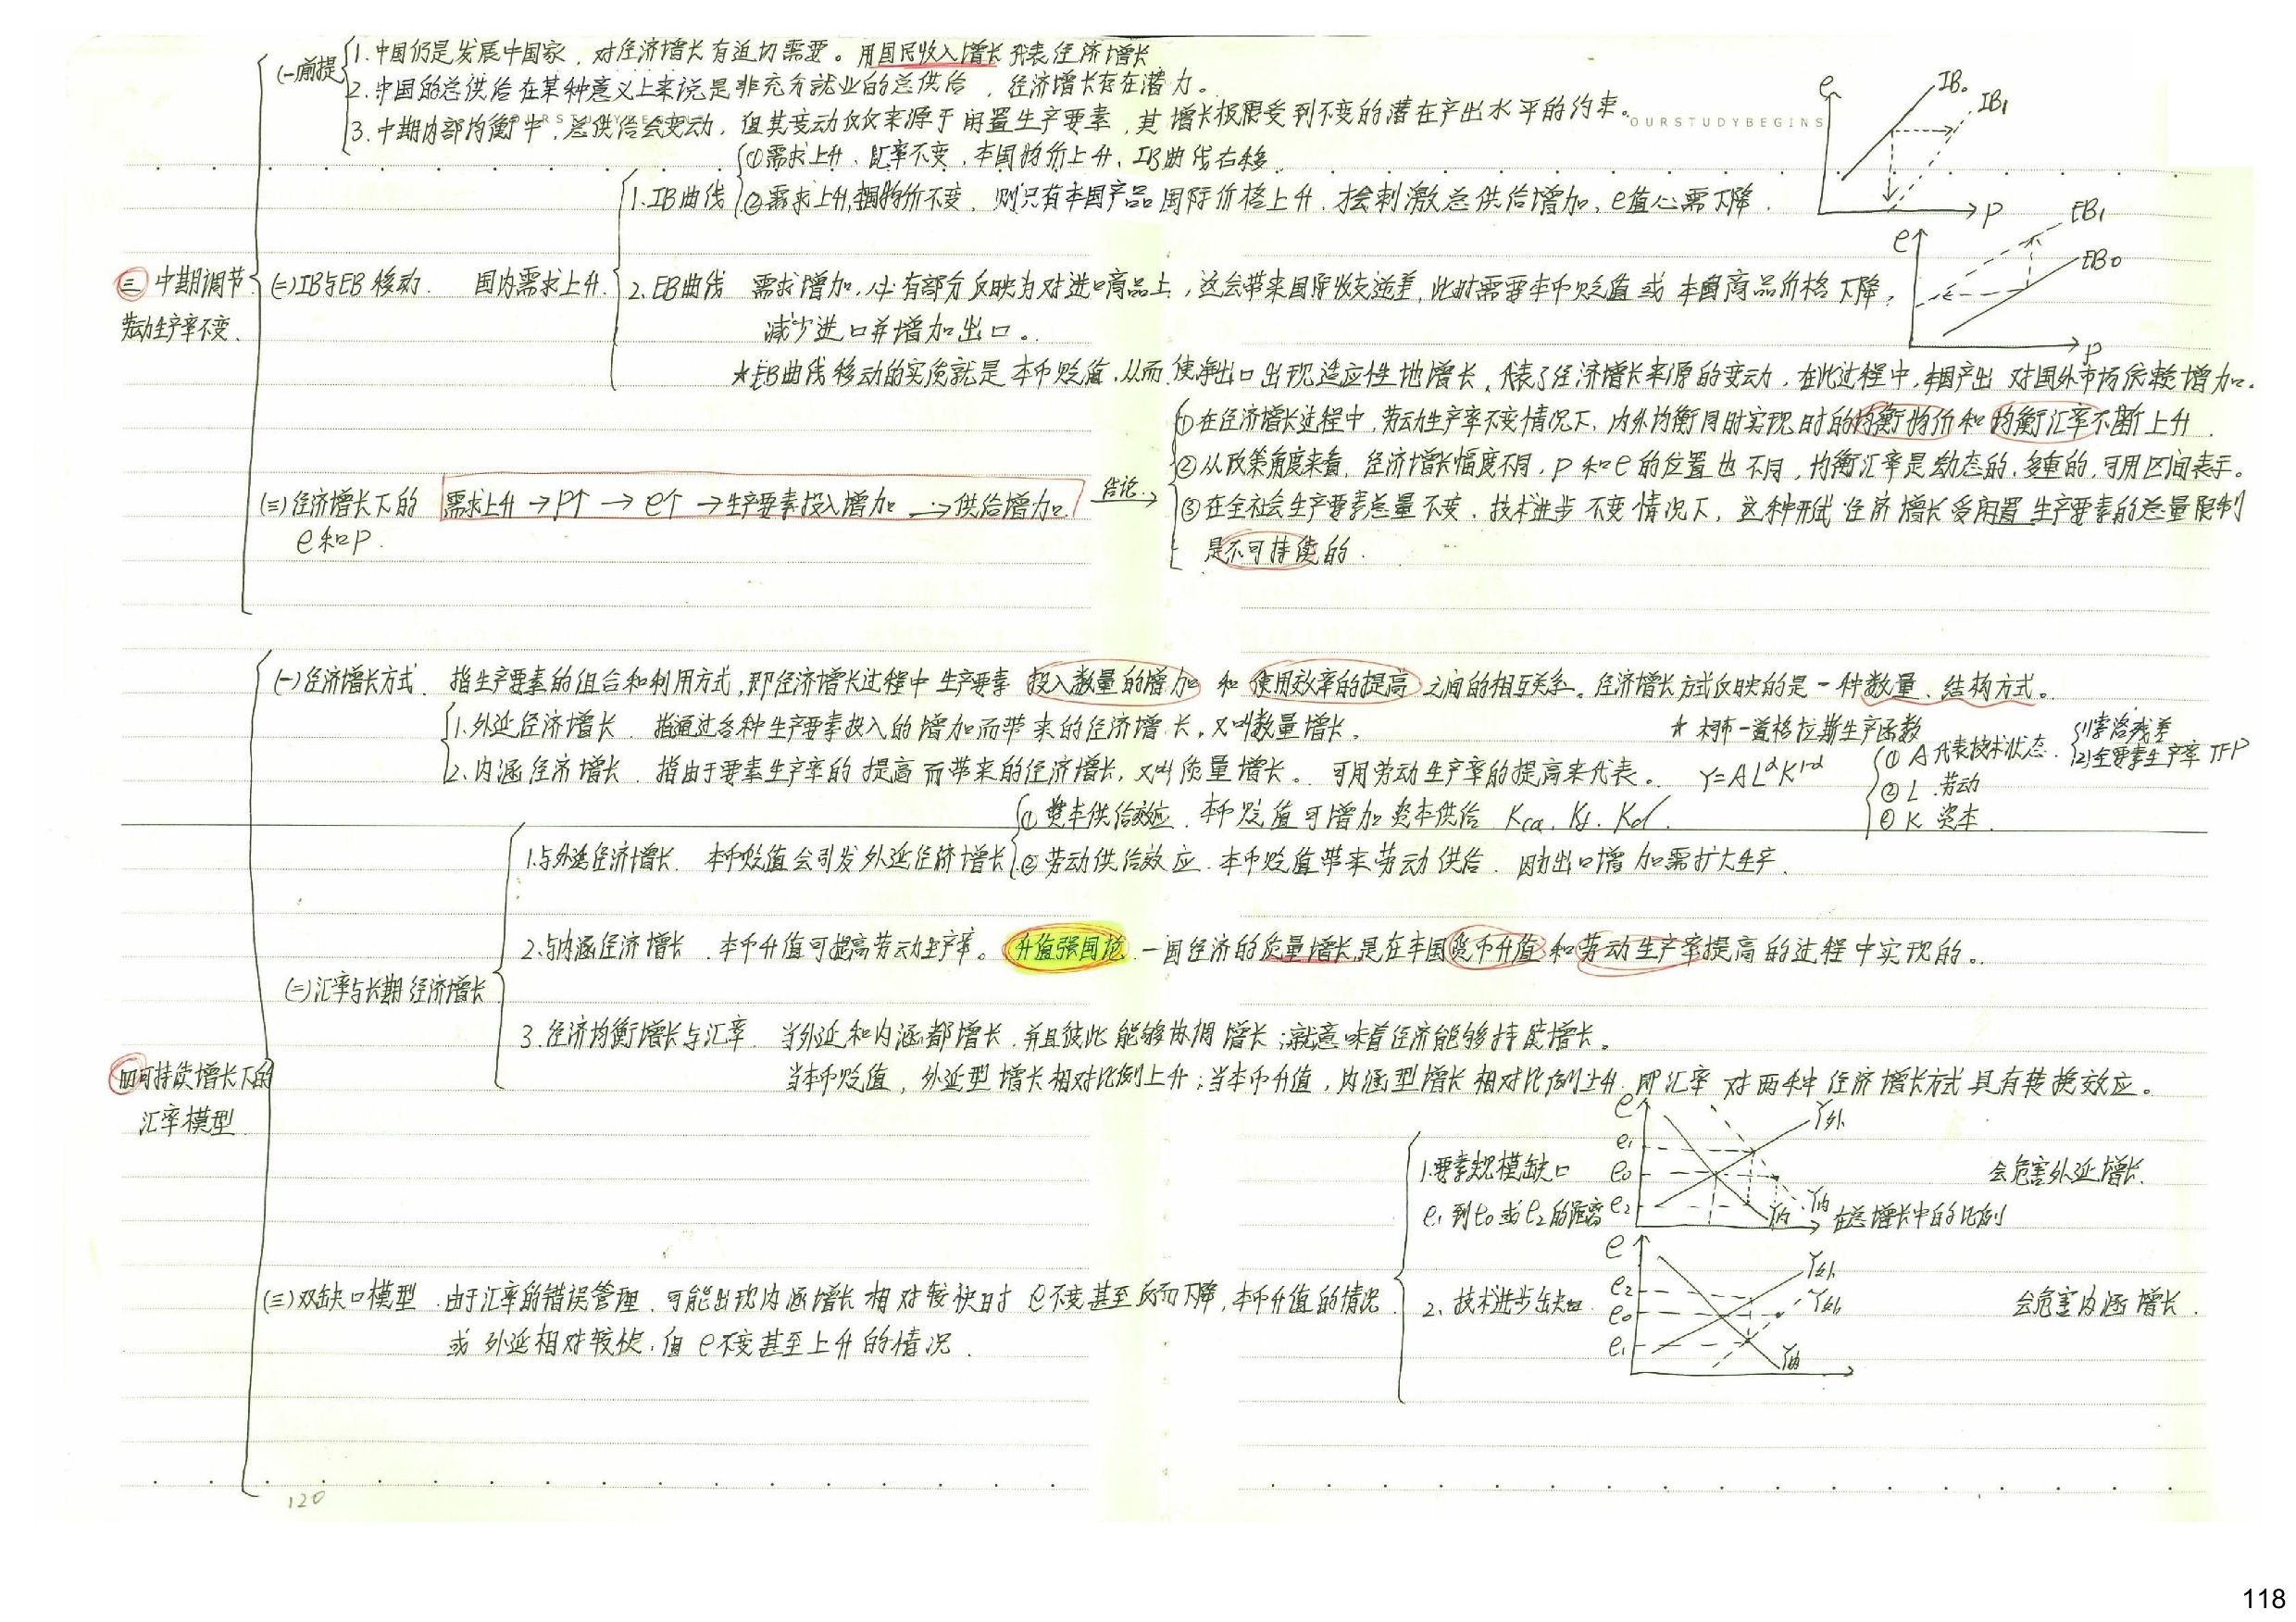 (一)前提
1.中国仍是发展中国家，对经济增长有迫切需要。用国民收入增长代表经济增长
2.中国的总供给在某种意义上来说是非充分就业的总供给，经济增长存在潜力。
3.中期内部均衡中，总供给会变动，但其变动仅仅来源于闲置生产要素，其增长极限受到不变的潜在产出水平的约束。
OURSTUDYBEGINS
三 中期调节
劳动生产率不变.
(二)IB与EB移动. 国内需求上升.
1.IB曲线
①需求上升、汇率不变，本国物价上升、IB曲线右移.
②需求上升,本国物价不变，则只有本国产品国际价格上升.才会刺激总供给增加，e值必需下降.
2.EB曲线 需求增加，必有部分反映为对进口商品上，这会带来国际收支逆差，此时需要本币贬值或本国商品价格下降，
减少进口并增加出口。
★EB曲线移动的实质就是本币贬值，从而使净出口出现适应性地增长，代表了经济增长来源的变动，在此过程中，本国产出对国外市场依赖增加.
e IB₀ IB₁ P
e EB₁ EB₀ P
(三)经济增长下的
e和P.
需求上升→P↑→e↑→生产要素投入增加→供给增加.
结论
①在经济增长过程中，劳动生产率不变情况下，内外均衡同时实现时的均衡物价和均衡汇率不断上升.
②从政策角度来看，经济增长幅度不同，P和e的位置也不同，均衡汇率是动态的，多重的，可用区间表示。
③在全社会生产要素总量不变，技术进步不变情况下，这种形式经济增长受闲置生产要素的总量限制
是不可持续的.
四可持续增长下的
汇率模型
(一)经济增长方式. 指生产要素的组合和利用方式，即经济增长过程中生产要素投入数量的增加和使用效率的提高之间的相互关系。经济增长方式反映的是一种数量、结构方式。
1.外延经济增长. 指通过各种生产要素投入的增加而带来的经济增长，又叫数量增长。
2.内涵经济增长. 指由于要素生产率的提高而带来的经济增长，又叫质量增长。可用劳动生产率的提高来代表。
★柯布-道格拉斯生产函数
Y=ALᵅK¹⁻ᵅ
①A代表技术状态.
(1)索洛残差
(2)全要素生产率 TFP
②L 劳动
③K 资本.
(二)汇率与长期经济增长
1.与外延经济增长. 本币贬值会引发外延经济增长
①资本供给效应. 本币贬值可增加资本供给 Kca. Kf. Kd.
②劳动供给效应. 本币贬值带来劳动供给. 因为出口增加需扩大生产.
2.与内涵经济增长. 本币升值可提高劳动生产率。升值强国论. 一国经济的质量增长是在本国货币升值和劳动生产率提高的过程中实现的。
3.经济均衡增长与汇率. 当外延和内涵都增长，并且彼此能够协调增长；就意味着经济能够持续增长。
当本币贬值，外延型增长相对比例上升；当本币升值，内涵型增长相对比例上升.即汇率对两种经济增长方式具有转换效应。
(三)双缺口模型. 由于汇率的错误管理，可能出现内涵增长相对较快时e不变甚至反而下降，本币升值的情况.
或外延相对较快，但e不变甚至上升的情况.
1.要素规模缺口
e₁到e₀或e₂的距离
e e₁ e₀ e₂ Y外 Y内 Y内
在总增长中的比例
会危害外延增长.
2.技术进步缺口.
e e₂ e₀ e₁ Y外 Y外 Y内
会危害内涵增长.
120
118